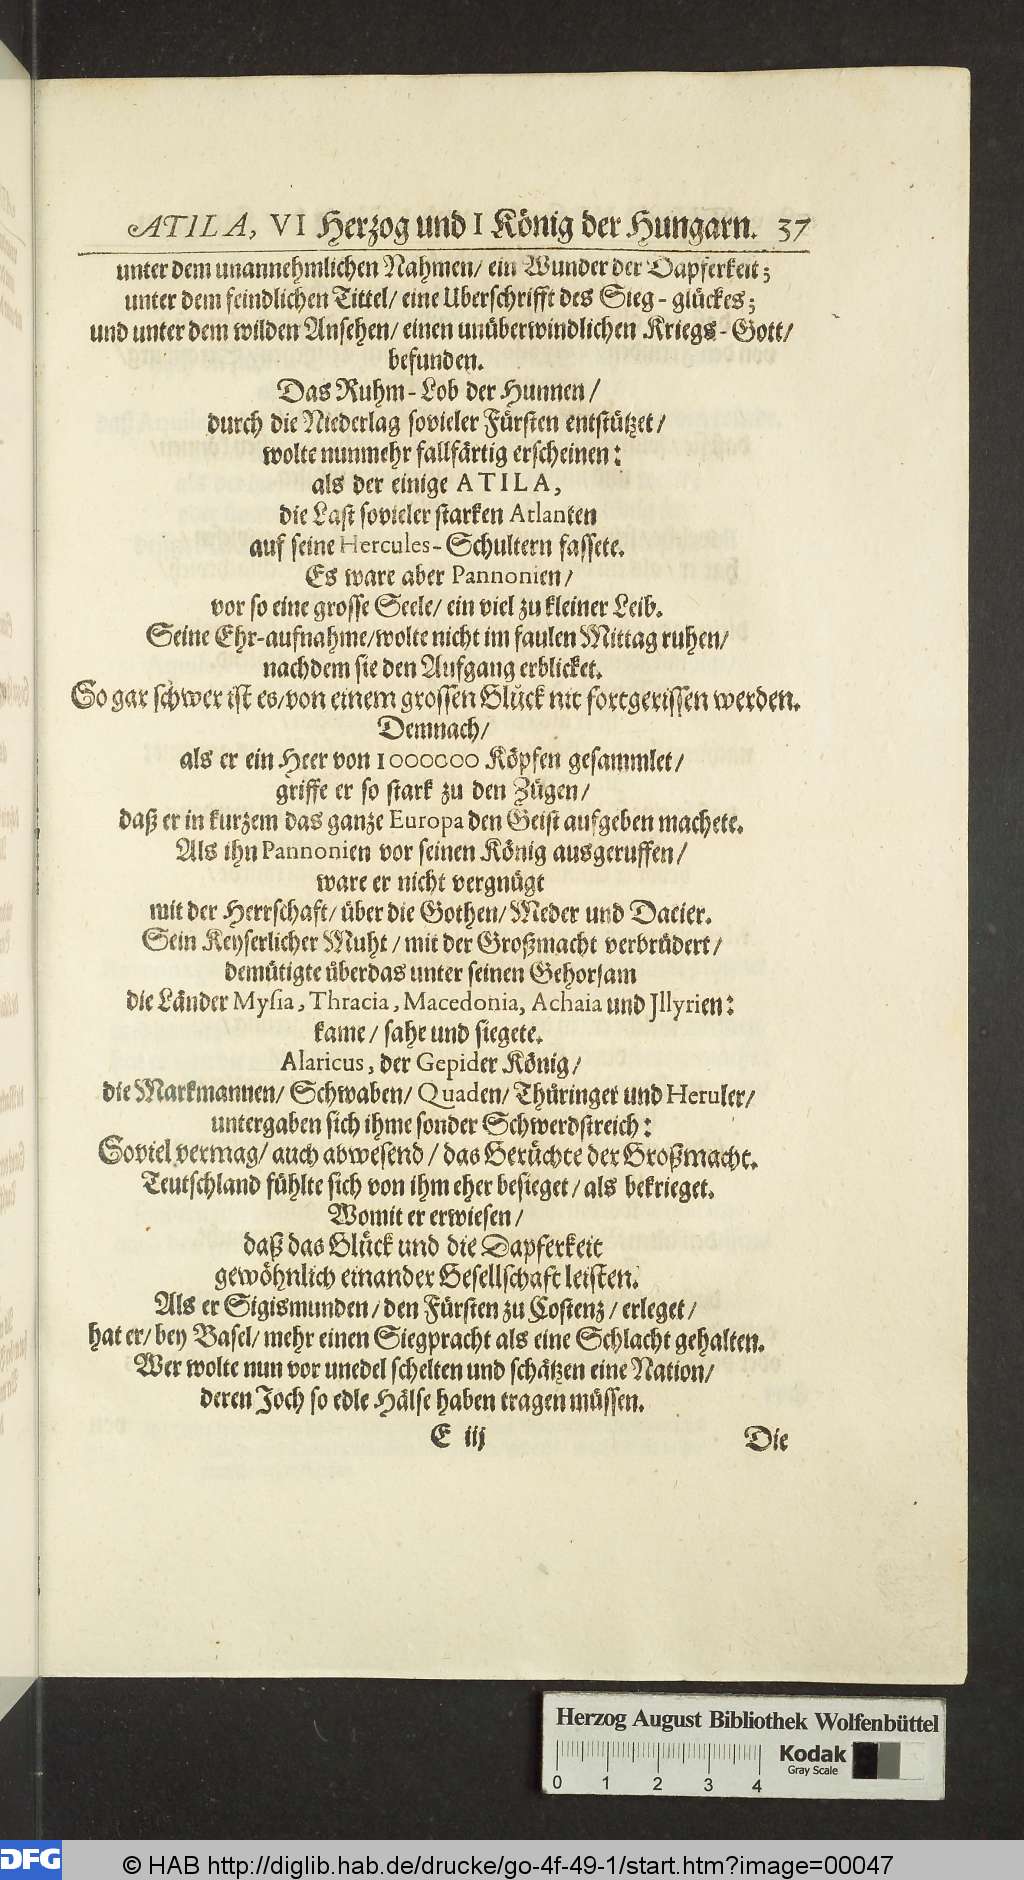 ATILA, VI Herzog und I König der Hungarn. 37
unter dem unannehmlichen Nahmen/ ein Wunder der Dapferkeit;
unter dem feindlichen Tittel/ eine Uberschrifft des Sieg-glückes;
und unter dem wilden Ansehen/ einen unüberwindlichen Kriegs-Gott/
befunden.
Das Ruhm-Lob der Hunnen/
durch die Niederlag sovieler Fürsten entstützet/
wolte nunmehr fallfärtig erscheinen:
als der einige ATILA,
die Last sovieler starken Atlanten
auf seine Hercules-Schultern fassete.
Es ware aber Pannonien/
vor so eine grosse Seele/ ein viel zu kleiner Leib.
Seine Ehr-aufnahme/wolte nicht im faulen Mittag ruhen/
nachdem sie den Aufgang erblicket.
So gar schwer ist es/von einem grossen Glück nit fortgerissen werden.
Demnach/
als er ein Heer von 1000000 Köpfen gesammlet/
griffe er so stark zu den Zügen/
daß er in kurzem das ganze Europa den Geist aufgeben machete.
Als ihn Pannonien vor seinen König ausgeruffen/
ware er nicht vergnügt
mit der Herrschaft/ über die Gothen/ Meder und Dacier.
Sein Keyserlicher Muht/ mit der Großmacht verbrüdert/
demütigte überdas unter seinen Gehorsam
die Länder Mysia, Thracia, Macedonia, Achaia und Jllyrien:
kame/ sahe und siegete.
Alaricus, der Gepider König/
die Markmannen/ Schwaben/ Quaden/ Thüringer und Heruler/
untergaben sich ihme sonder Schwerdstreich:
Soviel vermag/ auch abwesend/ das Gerüchte der Großmacht.
Teutschland fühlte sich von ihm eher besieget/ als bekrieget.
Womit er erwiesen/
daß das Glück und die Dapferkeit
gewöhnlich einander Gesellschaft leisten.
Als er Sigismunden/ den Fürsten zu Costenz/ erleget/
hat er/ bey Basel/ mehr einen Siegpracht als eine Schlacht gehalten.
Wer wolte nun vor unedel schelten und schätzen eine Nation/
deren Joch so edle Hälse haben tragen müssen.
E iij Die
Herzog August Bibliothek Wolfenbüttel
Kodak
Gray Scale
0 1 2 3 4
DFG
© HAB http://diglib.hab.de/drucke/go-4f-49-1/start.htm?image=00047